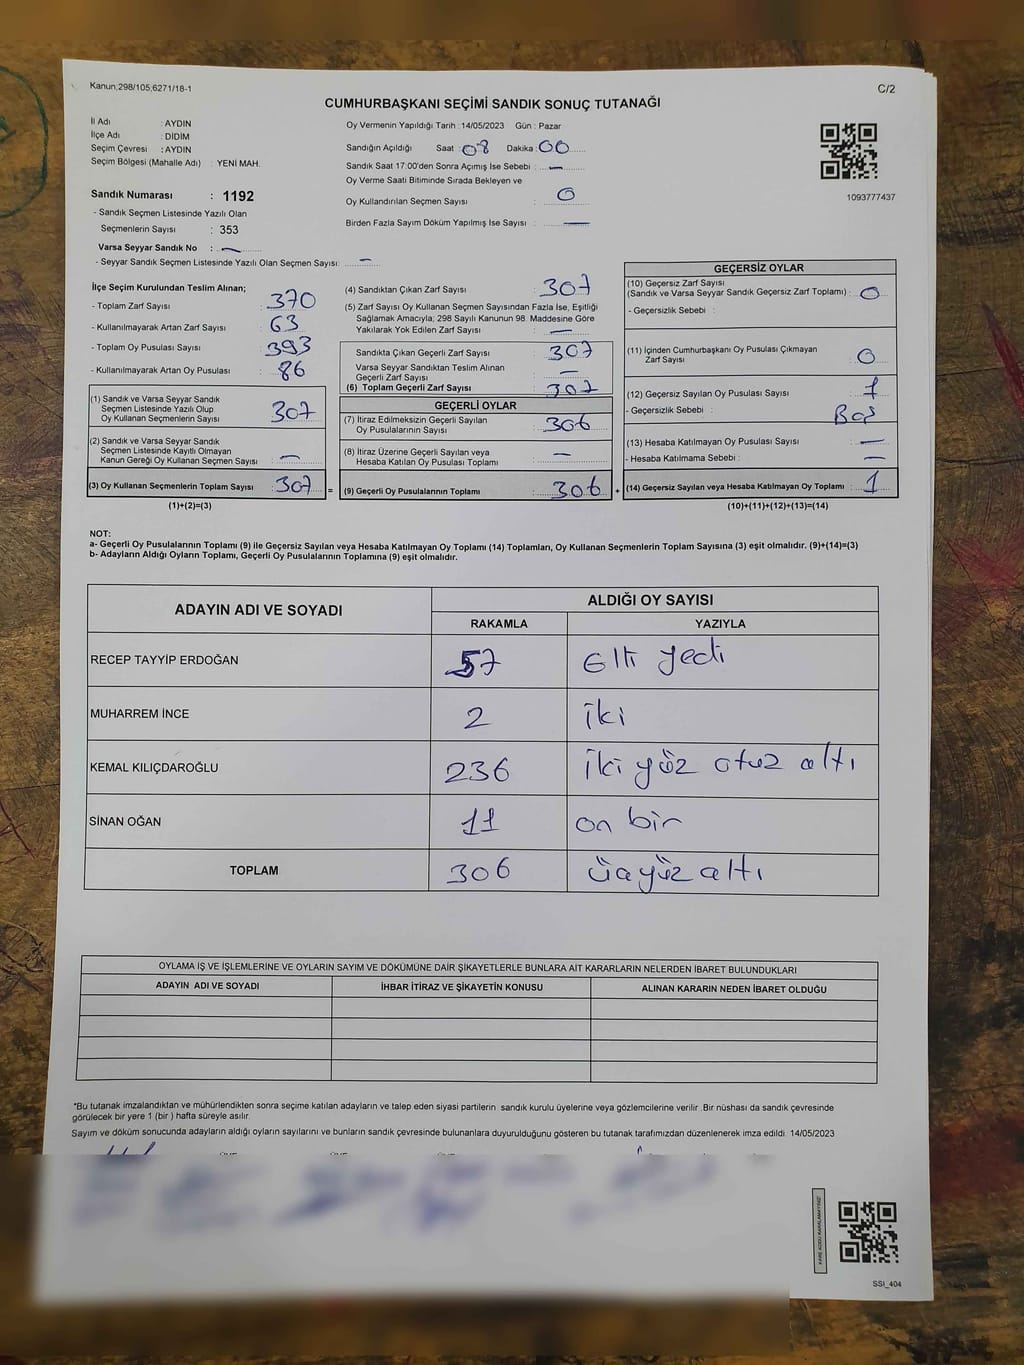 Kanun;298/105,6271/18-1
C/2
CUMHURBAŞKANI SEÇİMİ SANDIK SONUÇ TUTANAĞI
İl Adı : AYDIN
İlçe Adı : DİDİM
Seçim Çevresi : AYDIN
Seçim Bölgesi (Mahalle Adı) : YENİ MAH.
Sandık Numarası : 1192
- Sandık Seçmen Listesinde Yazılı Olan
Seçmenlerin Sayısı : 353
Varsa Seyyar Sandık No : —
- Seyyar Sandık Seçmen Listesinde Yazılı Olan Seçmen Sayısı: —
Oy Vermenin Yapıldığı Tarih : 14/05/2023 Gün : Pazar
Sandığın Açıldığı Saat : 08 Dakika : 00
Sandık Saat 17:00'den Sonra Açımış İse Sebebi : —
Oy Verme Saati Bitiminde Sırada Bekleyen ve
Oy Kullandırılan Seçmen Sayısı : 0
Birden Fazla Sayım Döküm Yapılmış İse Sayısı : —
1093777437
İlçe Seçim Kurulundan Teslim Alınan;
- Toplam Zarf Sayısı : 370
- Kullanılmayarak Artan Zarf Sayısı : 63
- Toplam Oy Pusulası Sayısı : 393
- Kullanılmayarak Artan Oy Pusulası : 86
(1) Sandık ve Varsa Seyyar Sandık
Seçmen Listesinde Yazılı Olup
Oy Kullanan Seçmenlerin Sayısı : 307
(2) Sandık ve Varsa Seyyar Sandık
Seçmen Listesinde Kayıtlı Olmayan
Kanun Gereği Oy Kullanan Seçmen Sayısı : —
(3) Oy Kullanan Seçmenlerin Toplam Sayısı : 307 =
(1)+(2)=(3)
(4) Sandıktan Çıkan Zarf Sayısı : 307
(5) Zarf Sayısı Oy Kullanan Seçmen Sayısından Fazla İse, Eşitliği
Sağlamak Amacıyla; 298 Sayılı Kanunun 98. Maddesine Göre
Yakılarak Yok Edilen Zarf Sayısı : —
Sandıkta Çıkan Geçerli Zarf Sayısı : 307
Varsa Seyyar Sandıktan Teslim Alınan
Geçerli Zarf Sayısı : —
(6) Toplam Geçerli Zarf Sayısı : 307
GEÇERLİ OYLAR
(7) İtiraz Edilmeksizin Geçerli Sayılan
Oy Pusulalarının Sayısı : 306
(8) İtiraz Üzerine Geçerli Sayılan veya
Hesaba Katılan Oy Pusulası Toplamı : —
(9) Geçerli Oy Pusulalarının Toplamı : 306 +
GEÇERSİZ OYLAR
(10) Geçersiz Zarf Sayısı
(Sandık ve Varsa Seyyar Sandık Geçersiz Zarf Toplamı) : 0
- Geçersizlik Sebebi :
(11) İçinden Cumhurbaşkanı Oy Pusulası Çıkmayan
Zarf Sayısı : 0
(12) Geçersiz Sayılan Oy Pusulası Sayısı : 1
- Geçersizlik Sebebi : Boş
(13) Hesaba Katılmayan Oy Pusulası Sayısı : —
- Hesaba Katılmama Sebebi : —
(14) Geçersiz Sayılan veya Hesaba Katılmayan Oy Toplamı : 1
(10)+(11)+(12)+(13)=(14)
NOT:
a- Geçerli Oy Pusulalarının Toplamı (9) ile Geçersiz Sayılan veya Hesaba Katılmayan Oy Toplamı (14) Toplamları, Oy Kullanan Seçmenlerin Toplam Sayısına (3) eşit olmalıdır. (9)+(14)=(3)
b- Adayların Aldığı Oyların Toplamı, Geçerli Oy Pusulalarının Toplamına (9) eşit olmalıdır.
ADAYIN ADI VE SOYADI ALDIĞI OY SAYISI
RAKAMLA YAZIYLA
RECEP TAYYİP ERDOĞAN 57 Elli yedi
MUHARREM İNCE 2 iki
KEMAL KILIÇDAROĞLU 236 iki yüz otuz altı
SİNAN OĞAN 11 on bir
TOPLAM 306 üçyüz altı
OYLAMA İŞ VE İŞLEMLERİNE VE OYLARIN SAYIM VE DÖKÜMÜNE DAİR ŞİKAYETLERLE BUNLARA AİT KARARLARIN NELERDEN İBARET BULUNDUKLARI
ADAYIN ADI VE SOYADI İHBAR İTİRAZ VE ŞİKAYETİN KONUSU ALINAN KARARIN NEDEN İBARET OLDUĞU
*Bu tutanak imzalandıktan ve mühürlendikten sonra seçime katılan adayların ve talep eden siyasi partilerin sandık kurulu üyelerine veya gözlemcilerine verilir .Bir nüshası da sandık çevresinde
görülecek bir yere 1 (bir ) hafta süreyle asılır.
Sayım ve döküm sonucunda adayların aldığı oyların sayılarını ve bunların sandık çevresinde bulunanlara duyurulduğunu gösteren bu tutanak tarafımızdan düzenlenerek imza edildi. 14/05/2023
SSİ_404